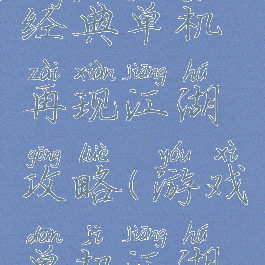 经典单机
zài xiàn jiāng hú
再现江湖
gōng lüè yóu xì
攻略(游戏
dan ji jiāng hú
单机江湖